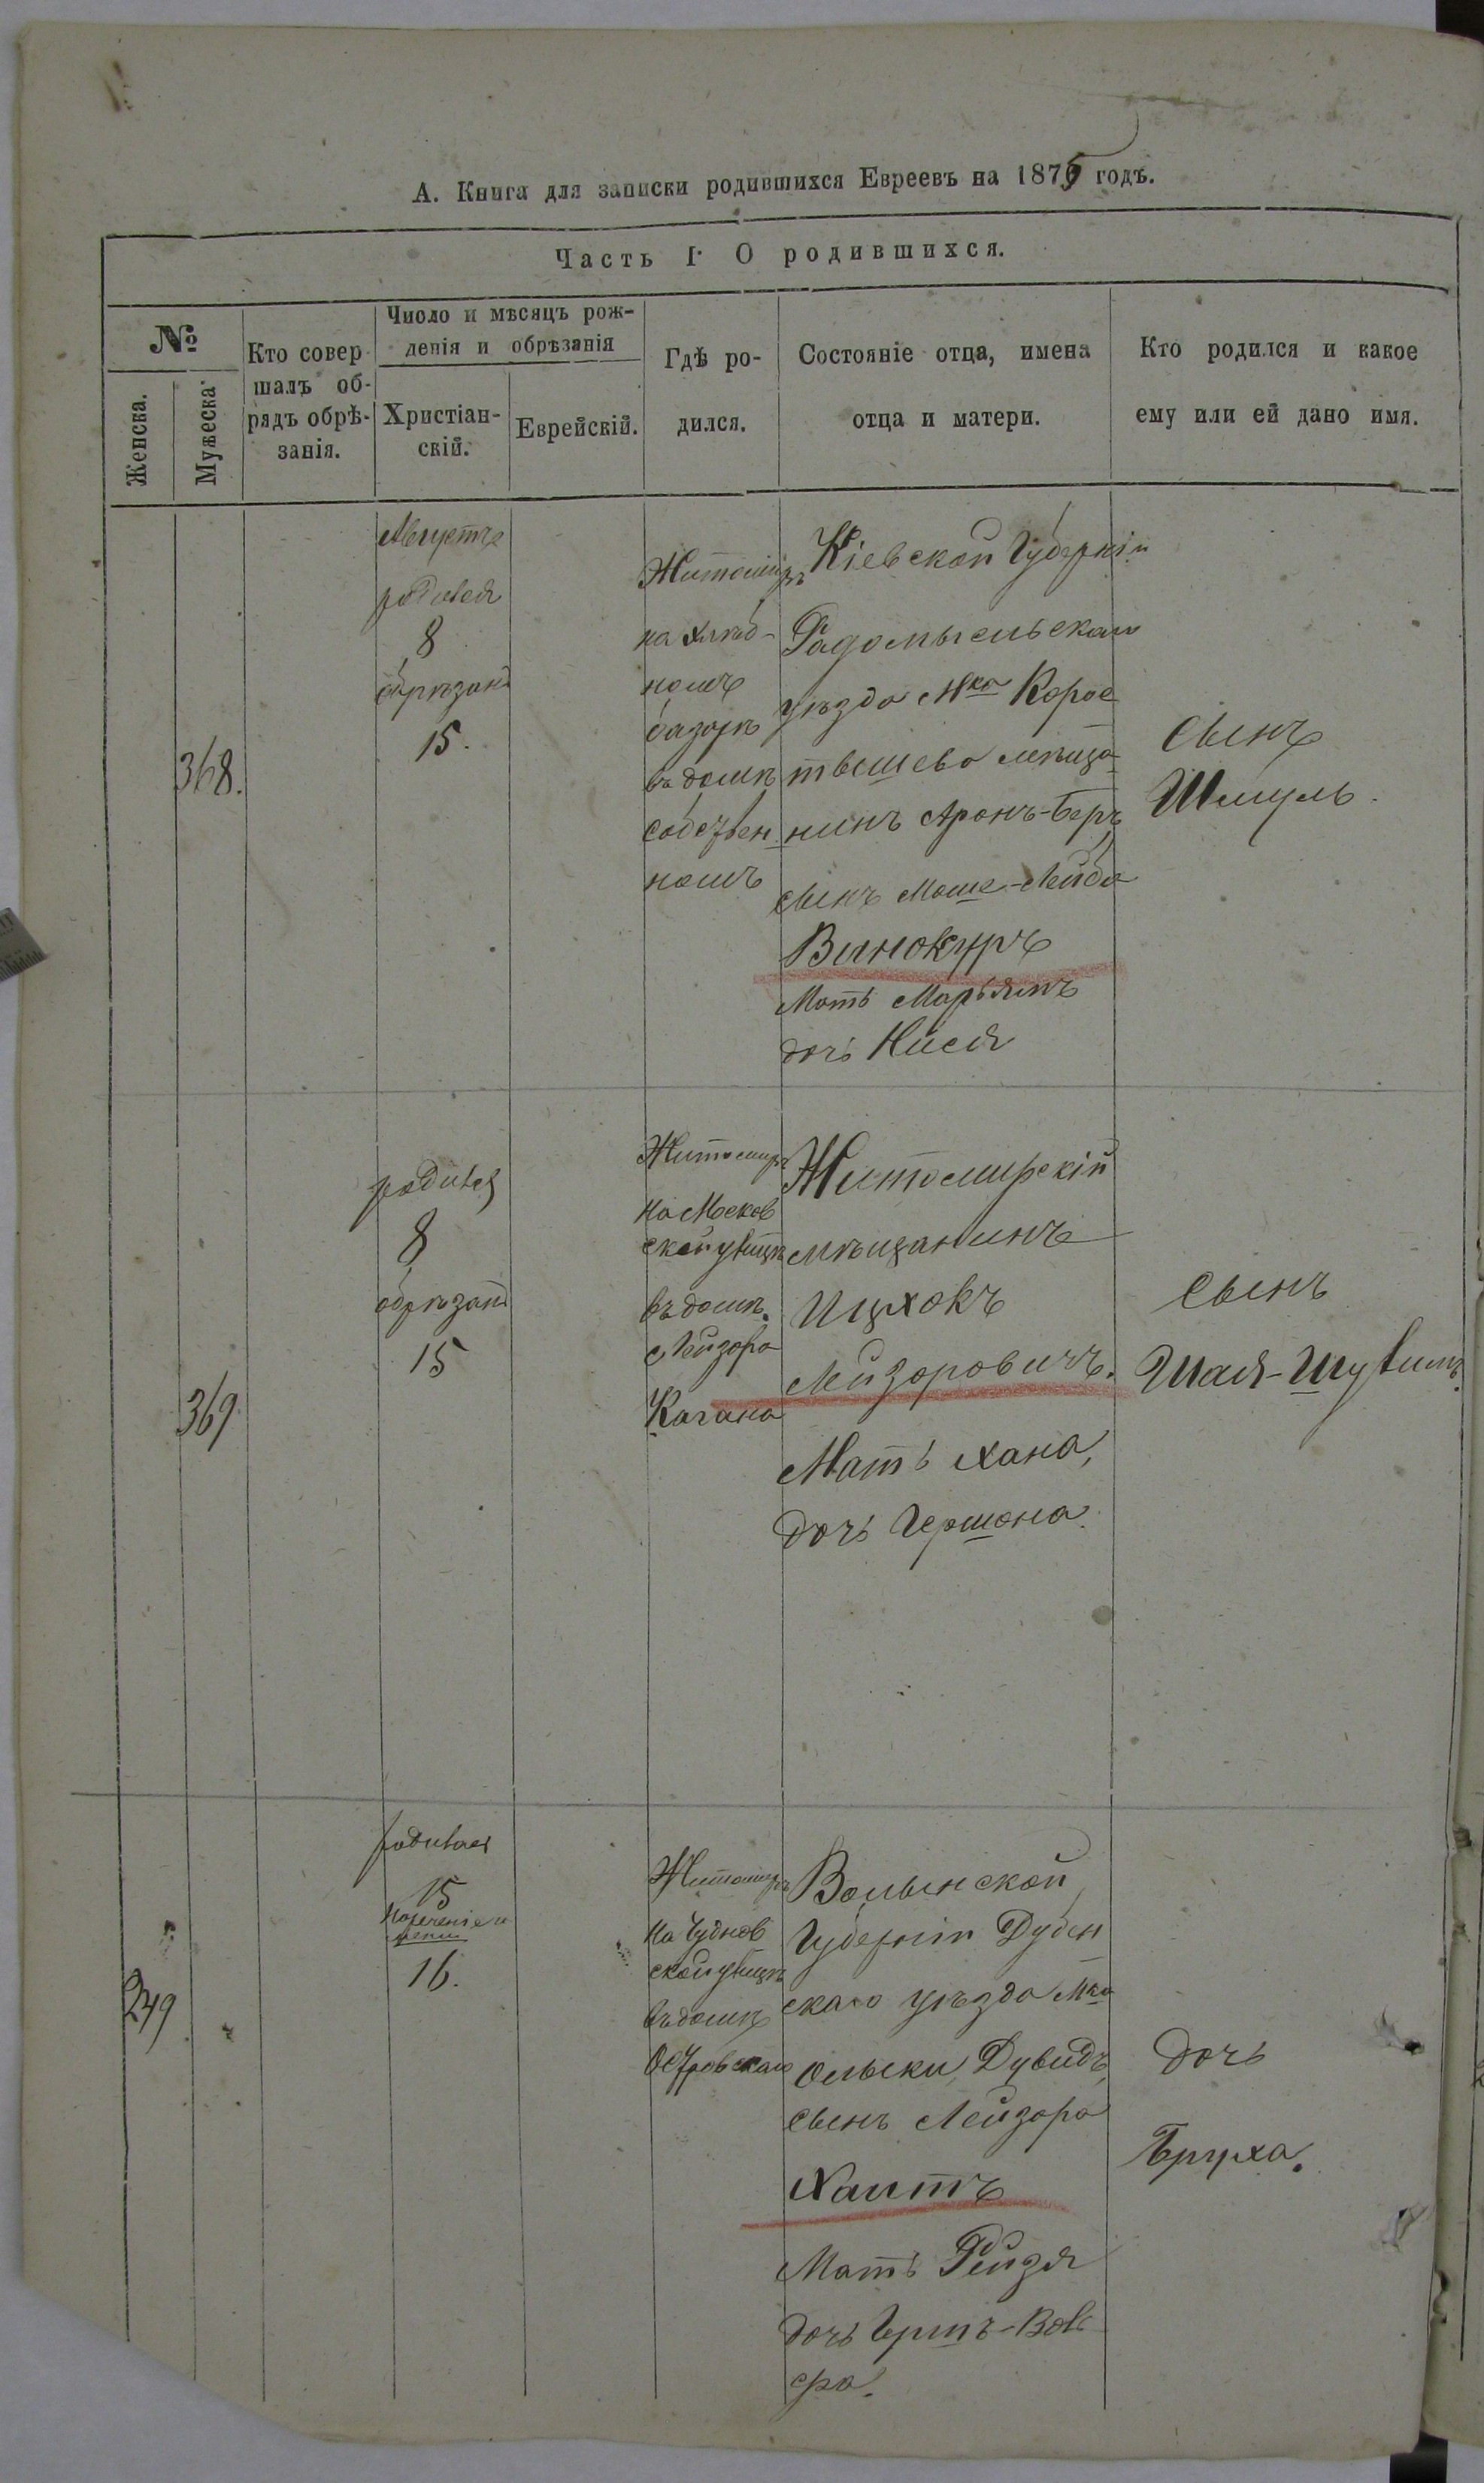 А. Книга для записки родившихся Евреевъ на 1875 годъ.
Часть I. О родившихся.
№
Женска.
Мужеска
Кто совер-
шалъ об-
рядъ обрѣ-
занія.
Число и мѣсяцъ рож-
денія и обрѣзанія
Христіан-
скій.
Еврейскій.
Гдѣ ро-
дился.
Состояніе отца, имена
отца и матери.
Кто родился и какое
ему или ей дано имя.
368.
Августъ
родился
8
обрѣзанъ
15.
Житоміръ
на хлѣб-
номъ
базарѣ
въ домѣ
собствен
номъ
Кіевской Губерніи
Радомысльскаго
уѣзда Мка Корос
тышева мѣща
нинъ Аронъ-Беръ
сынъ Моше-Лейба
Винокуръ
Мать Марьямъ
дочь Нисся
сынъ
Шмуль.
369.
родился
8
обрѣзанъ
15
Житоміръ
на Москов
ской улицѣ
въ домѣ
Лейзора
Кагана
Житомирскій
мѣщанинъ
Ицхокъ
Лейзоровичъ.
Мать Хана,
дочь Гершона.
сынъ
Шая-Шулимъ.
249
родилась
15
нареченіе и
мени
16.
Житоміръ
на Чуднов
ской улицѣ
въ домѣ
Островскаго
Волынской
Губерніи Дубен
скаго уѣзда Мка
Олыки, Дувидъ,
сынъ Лейзора
Хаитъ
Мать Рейзя
дочь Гершъ-Вол
фа.
дочь
Бруха.